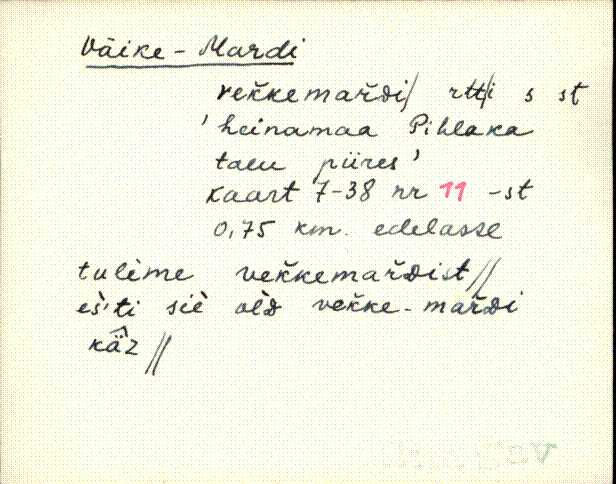 Väike-Mardi
vek̆kemar̆di/ rtt/i s st
'heinamaa Pihlaka
talu piires'
Kaart 7-38 nr 11 -st
0,75 km. edelasse
tulème vek̆kemar̆dist//
eś̀ti siè olD̀ vek̆ke-mar̆di
kä̭z //